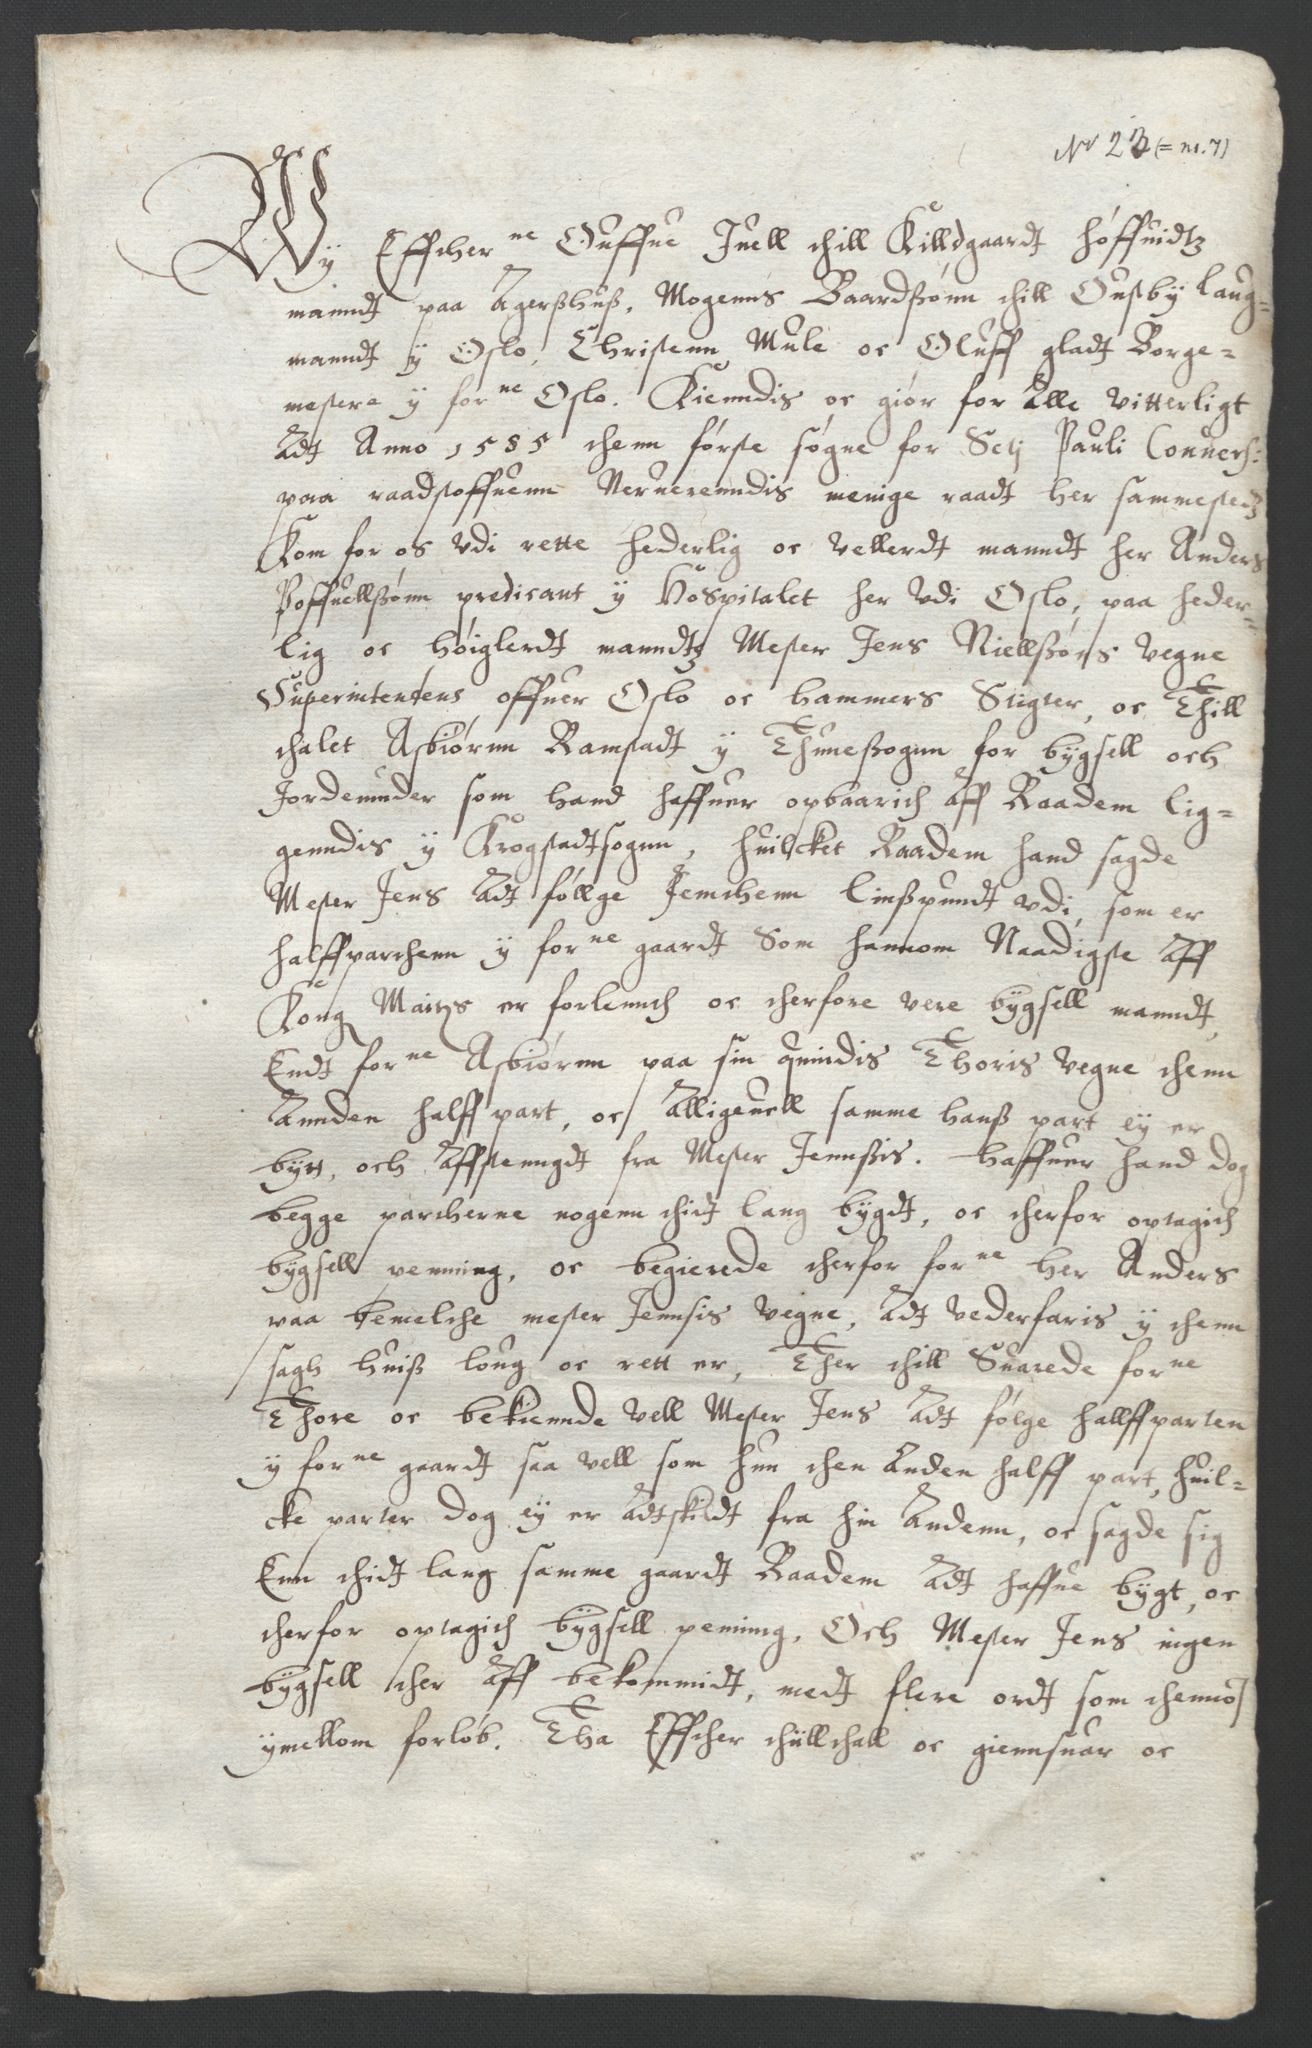 Nr 23 (= nr. 7)
Wy Effther ne Ouffue Juell thill Killdgaardt høffuidtz
manndt paa Agerßhuß, Mogenns Baardßønn thill Ousby laug-
manndt ÿ Oslo, Christenn Mule oc Oluff gladt Borge-
mestere ÿ for ne Oslo. Kienndis oc giør for Alle vitterligt
Adt Anno 1585 thenn første søgne for Sctj Pauli Conuers:
paa raadstoffuenn Neruerenndis menige raadt her sammestedtz
Kom for os vdi rette hederlig oc vellerdt manndt her Anders
Poffuellßønn predicant ÿ Hospitalet her vdi Oslo, paa heder-
lig oc høiglerdt manndtz Mester Jens Niellßøns vegne
Superintentens offuer Oslo oc hammers Stigter, oc Thill
thalet Asbiørnn Ramstadt ÿ Thuneßognn for bÿgsell och
Jordemunder som hand haffuer opbaarith Aff Raadem lig-
genndis ÿ Krogstadtsognn, huilcket Raadem hand sagde
Mester Jens Adt føllge Femthenn linßpundt vdi, som er
halffparthenn ÿ for ne gaardt Som hannom Naadigste Aff
Kong Maitzs er forlennth oc therfore vere bÿgsell manndt,
Endt for ne Asbiørnn paa sin quindis Thoris vegne thenn
Annden halff part, oc Alligeuell samme hanß part ey er
bytt, och Affstenngdt fra Mester Jennßis. Haffuer hand dog
begge partherne nogenn thidt lang bÿgdt, oc therfor optagith
bÿgsell penning, oc begierede therfor for ne her Anders
paa bemelthe mester Jennsis vegne, Adt vederfaris ÿ thenn
sagh huiß loug oc rett er, Ther thill Suarede for ne
Thore oc bekiennde vell Mester Jens Adt følge hallffparten
ÿ for ne gaardt saa vell som hun then Anden halff part, huil-
cke parter dog ey er Adtskildt fra hin Andenn, oc sagde sig
Enn thidt lang samme gaardt Raadem Adt haffue bÿgt, oc
therfor optagith bÿgsell penning, Och Mester Jens ingen
bÿgsell ther Aff bekommidt, medt flere ordt som thennom
ÿmellom forløb. Tha Effther thillthall oc giennsuar oc